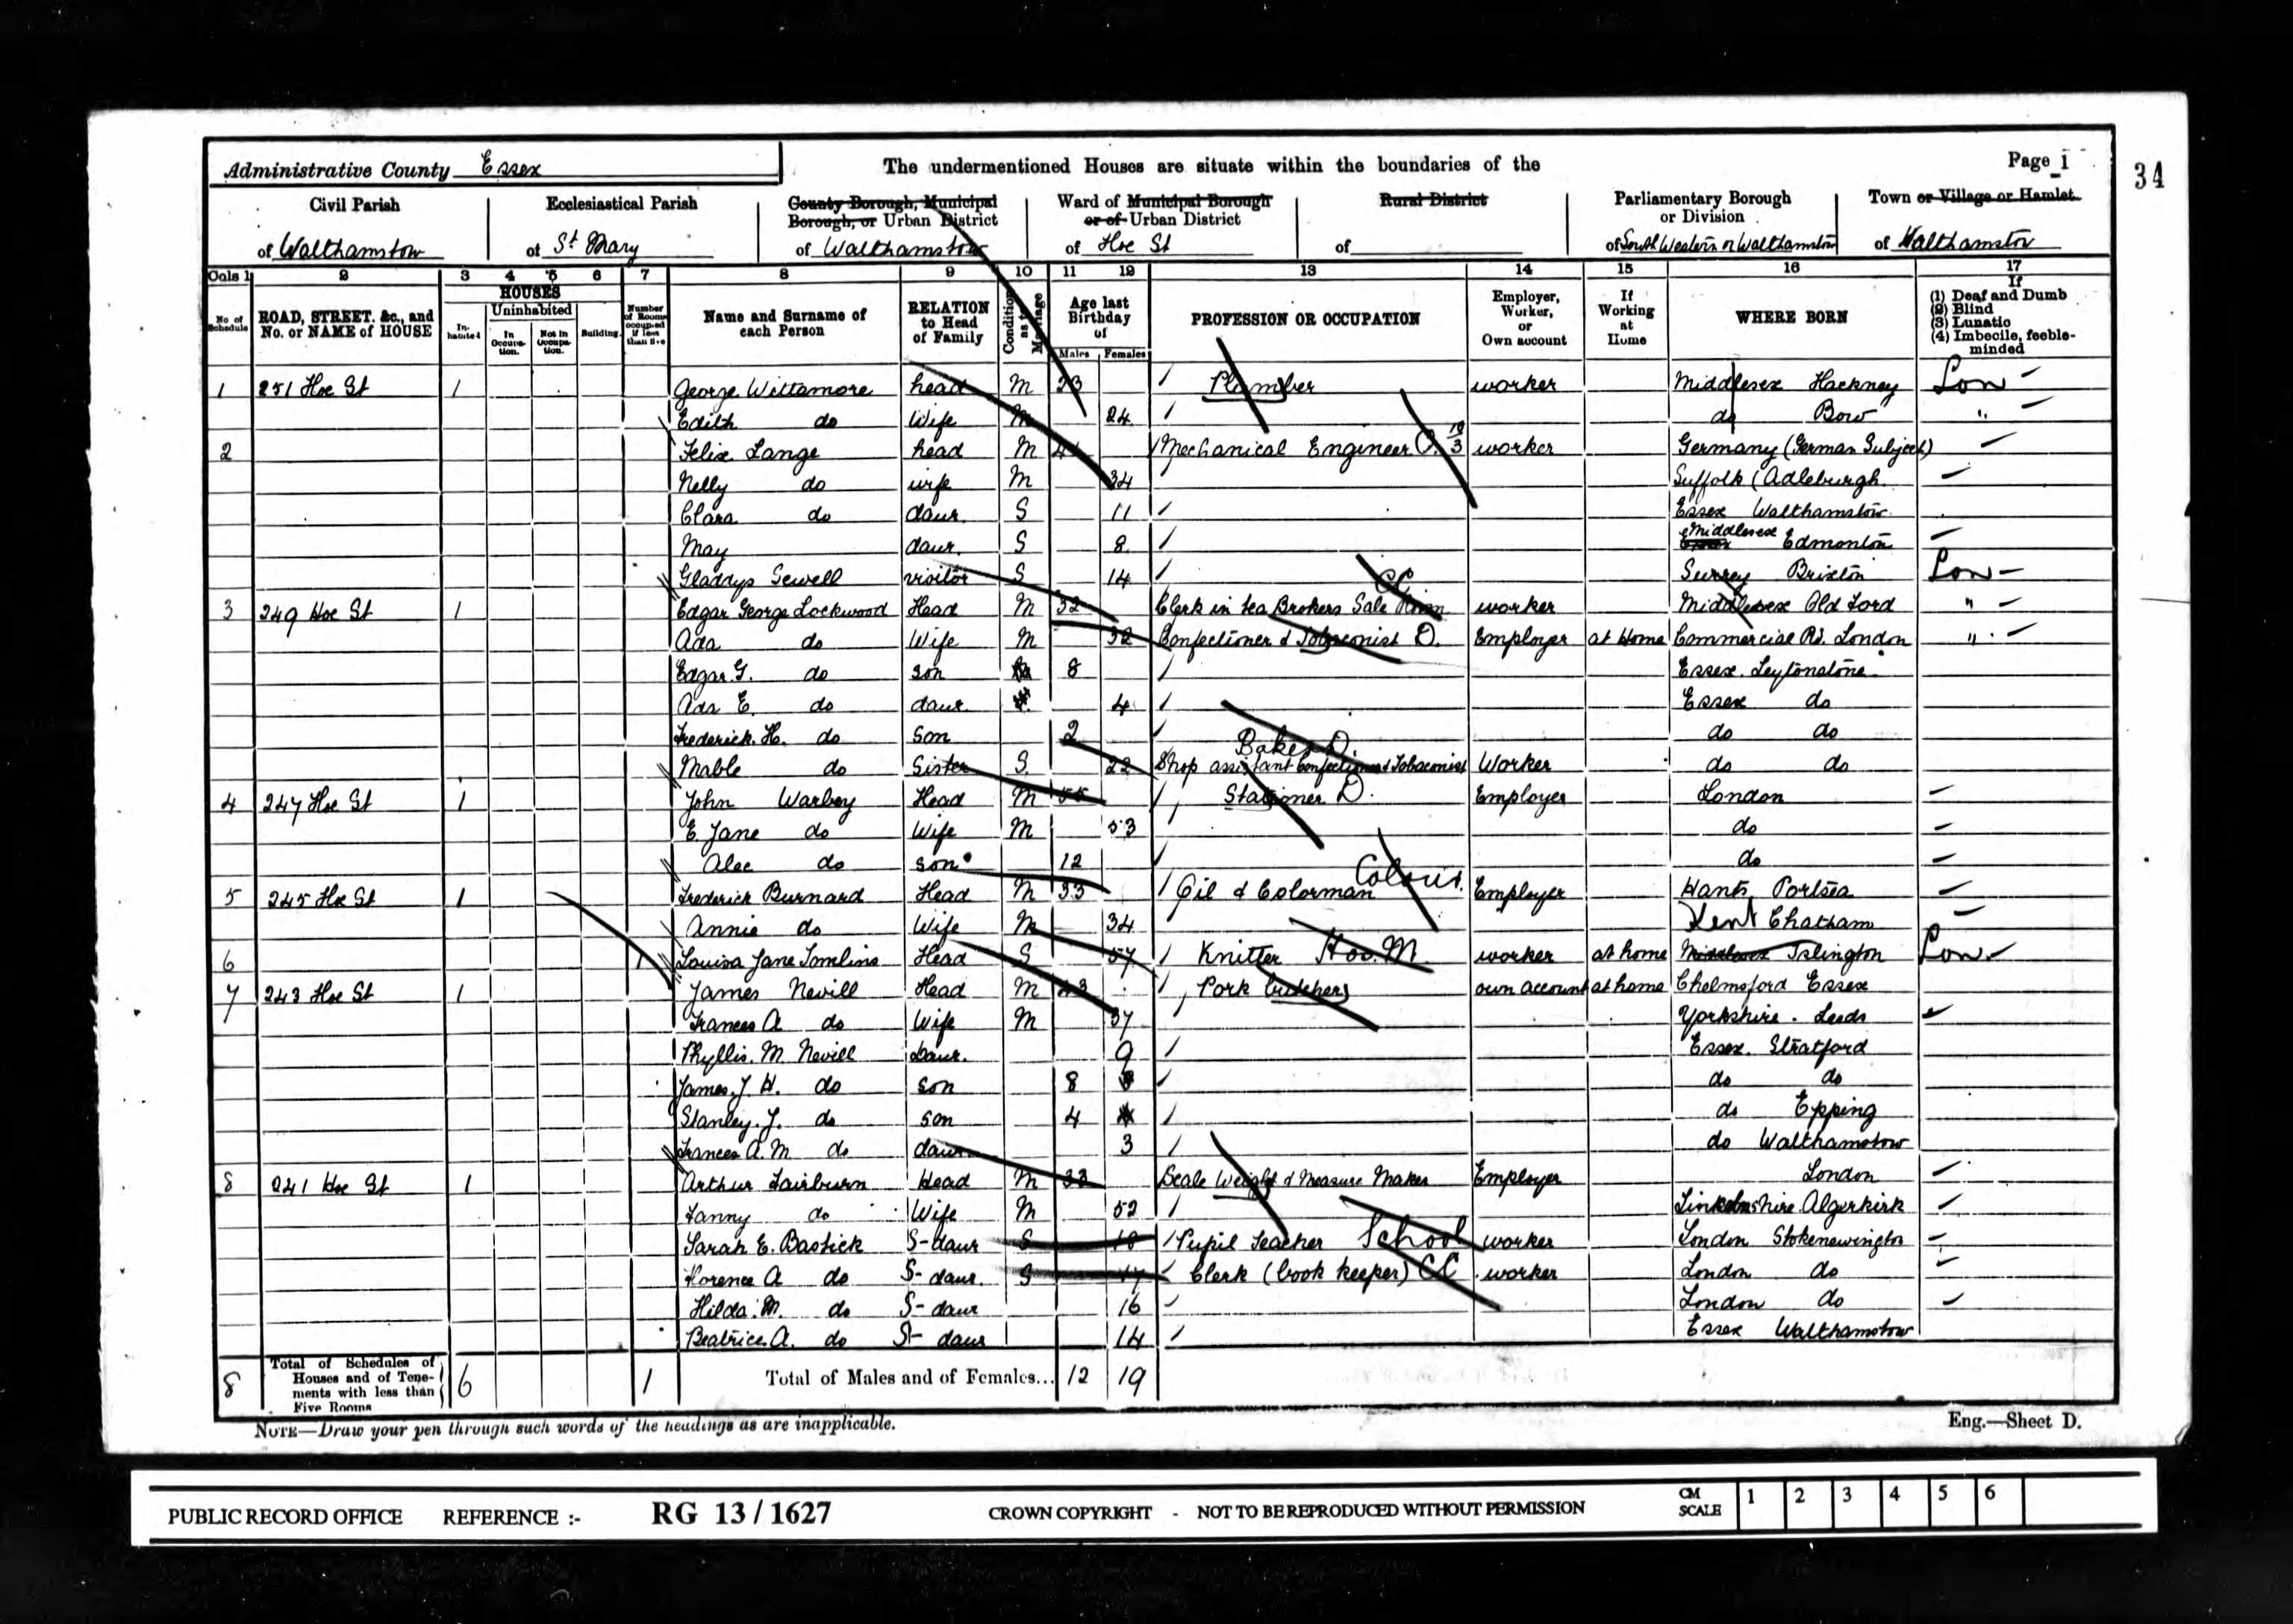 Administrative County Essex
The undermentioned Houses are situate within the boundaries of the
Page 1
34
Civil Parish
of Walthamstow
Ecclesiastical Parish
of St Mary
County Borough, Municipal Borough, or Urban District
of Walthamstow
Ward of Municipal Borough or of Urban District
of Hoe St
Rural District
of
Parliamentary Borough or Division
of South Western or Walthamstow
Town or Village or Hamlet
of Walthamstow
Cols 1 2 3 4 5 6 7 8 9 10 11 12 13 14 15 16 17
No of Schedule
ROAD, STREET, &c., and No. or NAME of HOUSE
HOUSES
Inhabited
Uninhabited
In Occupation.
Not in Occupation.
Building.
Number of Rooms occupied if less than five
Name and Surname of each Person
RELATION to Head of Family
Condition as to Marriage
Age last Birthday of
Males Females
PROFESSION OR OCCUPATION
Employer, Worker, or Own account
If Working at Home
WHERE BORN
If
(1) Deaf and Dumb
(2) Blind
(3) Lunatic
(4) Imbecile, feeble-minded
1 251 Hoe St 1 George Wittamore head M 23 Plumber worker Middlesex Hackney Lon
Edith do Wife M 24 do Bow "
2 Felix Lange head M Mechanical Engineer worker Germany (German Subject)
Nelly do wife M 34 Suffolk (Adleburgh
Clara do daur. S 11 Essex Walthamstow
May daur. S 8 Middlesex Edmonton
Gladdys Sewell visitor S 14 Surrey Brixton Lon
3 249 Hoe St 1 Edgar George Lockwood Head M 32 Clerk in tea Brokers Sale Room CC worker Middlesex Old Ford "
Ada do Wife M 32 Confectioner & Tobaconist D. Employer at Home Commercial Rd. London "
Edgar G. do son 8 Essex. Leytonstone
Ada E. do daur. 4 Essex do
Frederick. H. do Son 2 do do
Baker D.
Mable do Sister S. 22 Shop assistant Confectioner & Tobaconist Worker do do
4 247 Hoe St 1 John Warboy Head M 55 Stationer D. Employer London
E. Jane do Wife M 53 do
Alec do son 12 do
5 245 Hoe St 1 Frederick Burnard Head M 33 Oil & Colorman Colour. Employer Hants Portsea
Annie do Wife M 34 Kent Chatham
6 1 Louisa Jane Tomlins Head S 57 Knitter Hos. M. worker at home Middlesex Islington Lon
7 243 Hoe St 1 James Nevill Head M 43 Pork butcher own account at home Chelmsford Essex
Frances A do Wife M 37 Yorkshire. Leeds
Phyllis. M. Nevill Daur. 9 Essex. Stratford
James. J. H. do son 8 do do
Stanley. J. do son 4 do Epping
Frances A. M do daur 3 do Walthamstow
8 241 Hoe St 1 Arthur Fairburn Head M 33 Scale Weight & Measure Maker Employer London
Fanny do Wife M 52 Linkolnshire Algerkirk
Sarah E. Bastick S-daur S 18 Pupil Teacher School worker London Stokenewington
Florence A do S-daur. S 17 Clerk (book keeper) CC worker London do
Hilda. M. do S-daur 16 London do
Beatrice. A. do S-daur 14 Essex Walthamstow
8 Total of Schedules of Houses and of Tenements with less than Five Rooms 6 1 Total of Males and of Females... 12 19
NOTE—Draw your pen through such words of the headings as are inapplicable.
Eng.—Sheet D.
PUBLIC RECORD OFFICE REFERENCE :- RG 13/1627 CROWN COPYRIGHT - NOT TO BE REPRODUCED WITHOUT PERMISSION CM SCALE 1 2 3 4 5 6